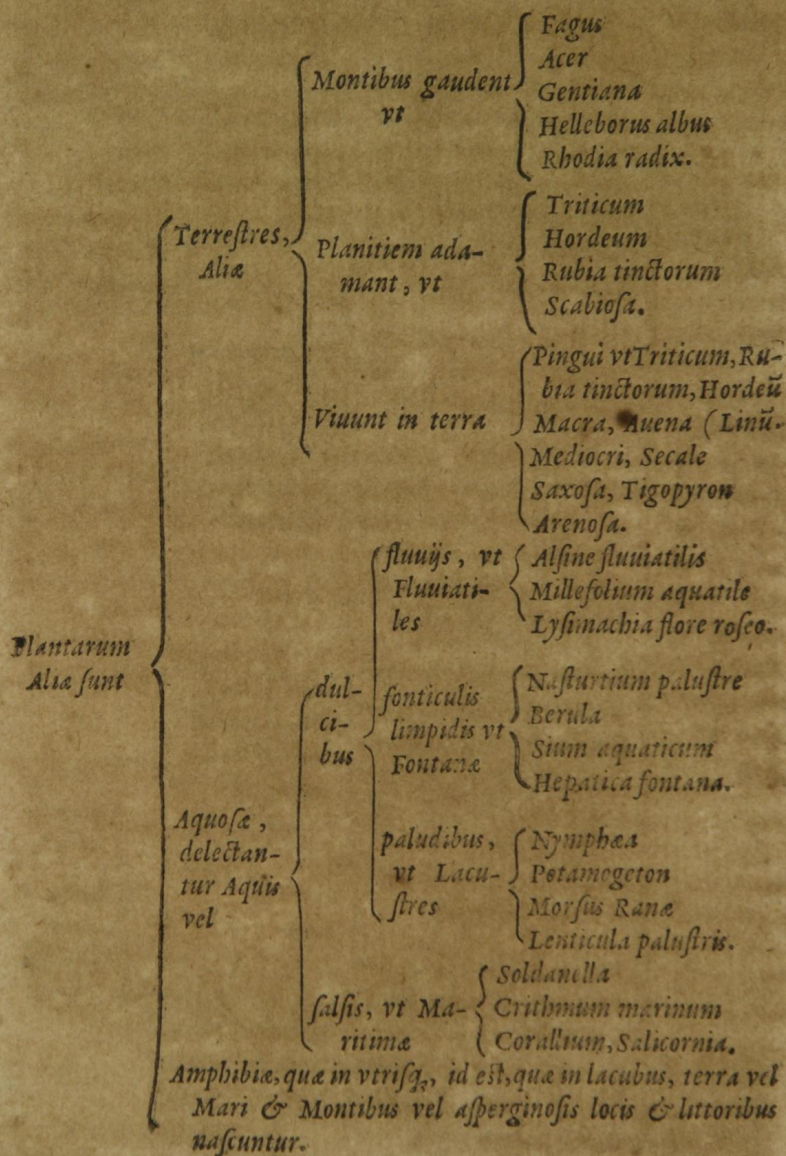 Plantarum
Aliæ ſunt
Terreſtres,
Aliæ
Montibus gaudent
vt
Fagus
Acer
Gentiana
Helleborus albus
Rhodia radix.
Planitiem ada-
mant, vt
Triticum
Hordeum
Rubia tinctorum
Scabioſa.
Viuunt in terra
Pingui vt Triticum, Ru-
bia tinctorum, Hordeū
Macra, Auena (Linū.
Mediocri, Secale
Saxoſa, Tigopyron
Arenoſa.
Aquoſæ,
delectan-
tur Aquis
vel
dul-
ci-
bus
fluuijs, vt
Fluuiati-
les
Alſine fluuiatilis
Millefolium aquatile
Lyſimachia flore roſeo.
fonticulis
limpidis vt
Fontanæ
Naſturtium paluſtre
Berula
Sium aquaticum
Hepatica fontana.
paludibus,
vt Lacu-
ſtres
Nymphæa
Potamogeton
Morſus Ranæ
Lenticula paluſtris.
ſalſis, vt Ma-
ritimæ
Soldanella
Crithmum marinum
Corallium, Salicornia.
Amphibiæ, quæ in vtriſq;, id eſt, quæ in lacubus, terra vel
Mari & Montibus vel aſperginoſis locis & littoribus
naſcuntur.